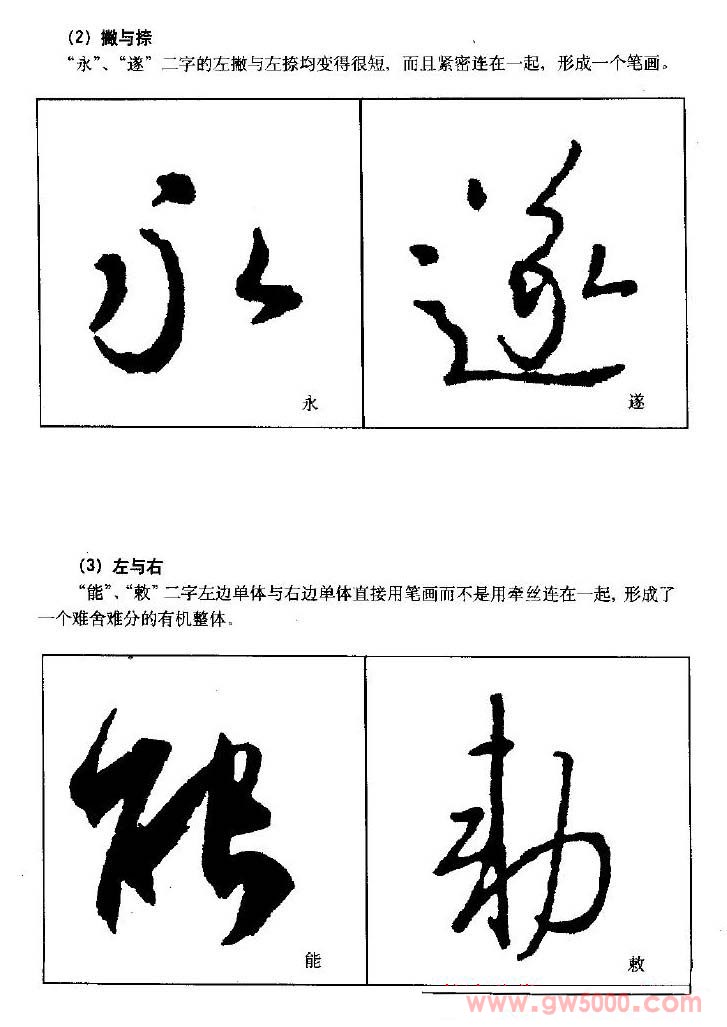 (2) 撇与捺
“永”、“遂” 二字的左撇与左捺均变得很短, 而且紧密连在一起, 形成一个笔画。
永 遂
永 遂
(3) 左与右
“能”、“敕” 二字左边单体与右边单体直接用笔画而不是用牵丝连在一起, 形成了
一个难舍难分的有机整体。
能 敕
能 敕
www.gw5000.com